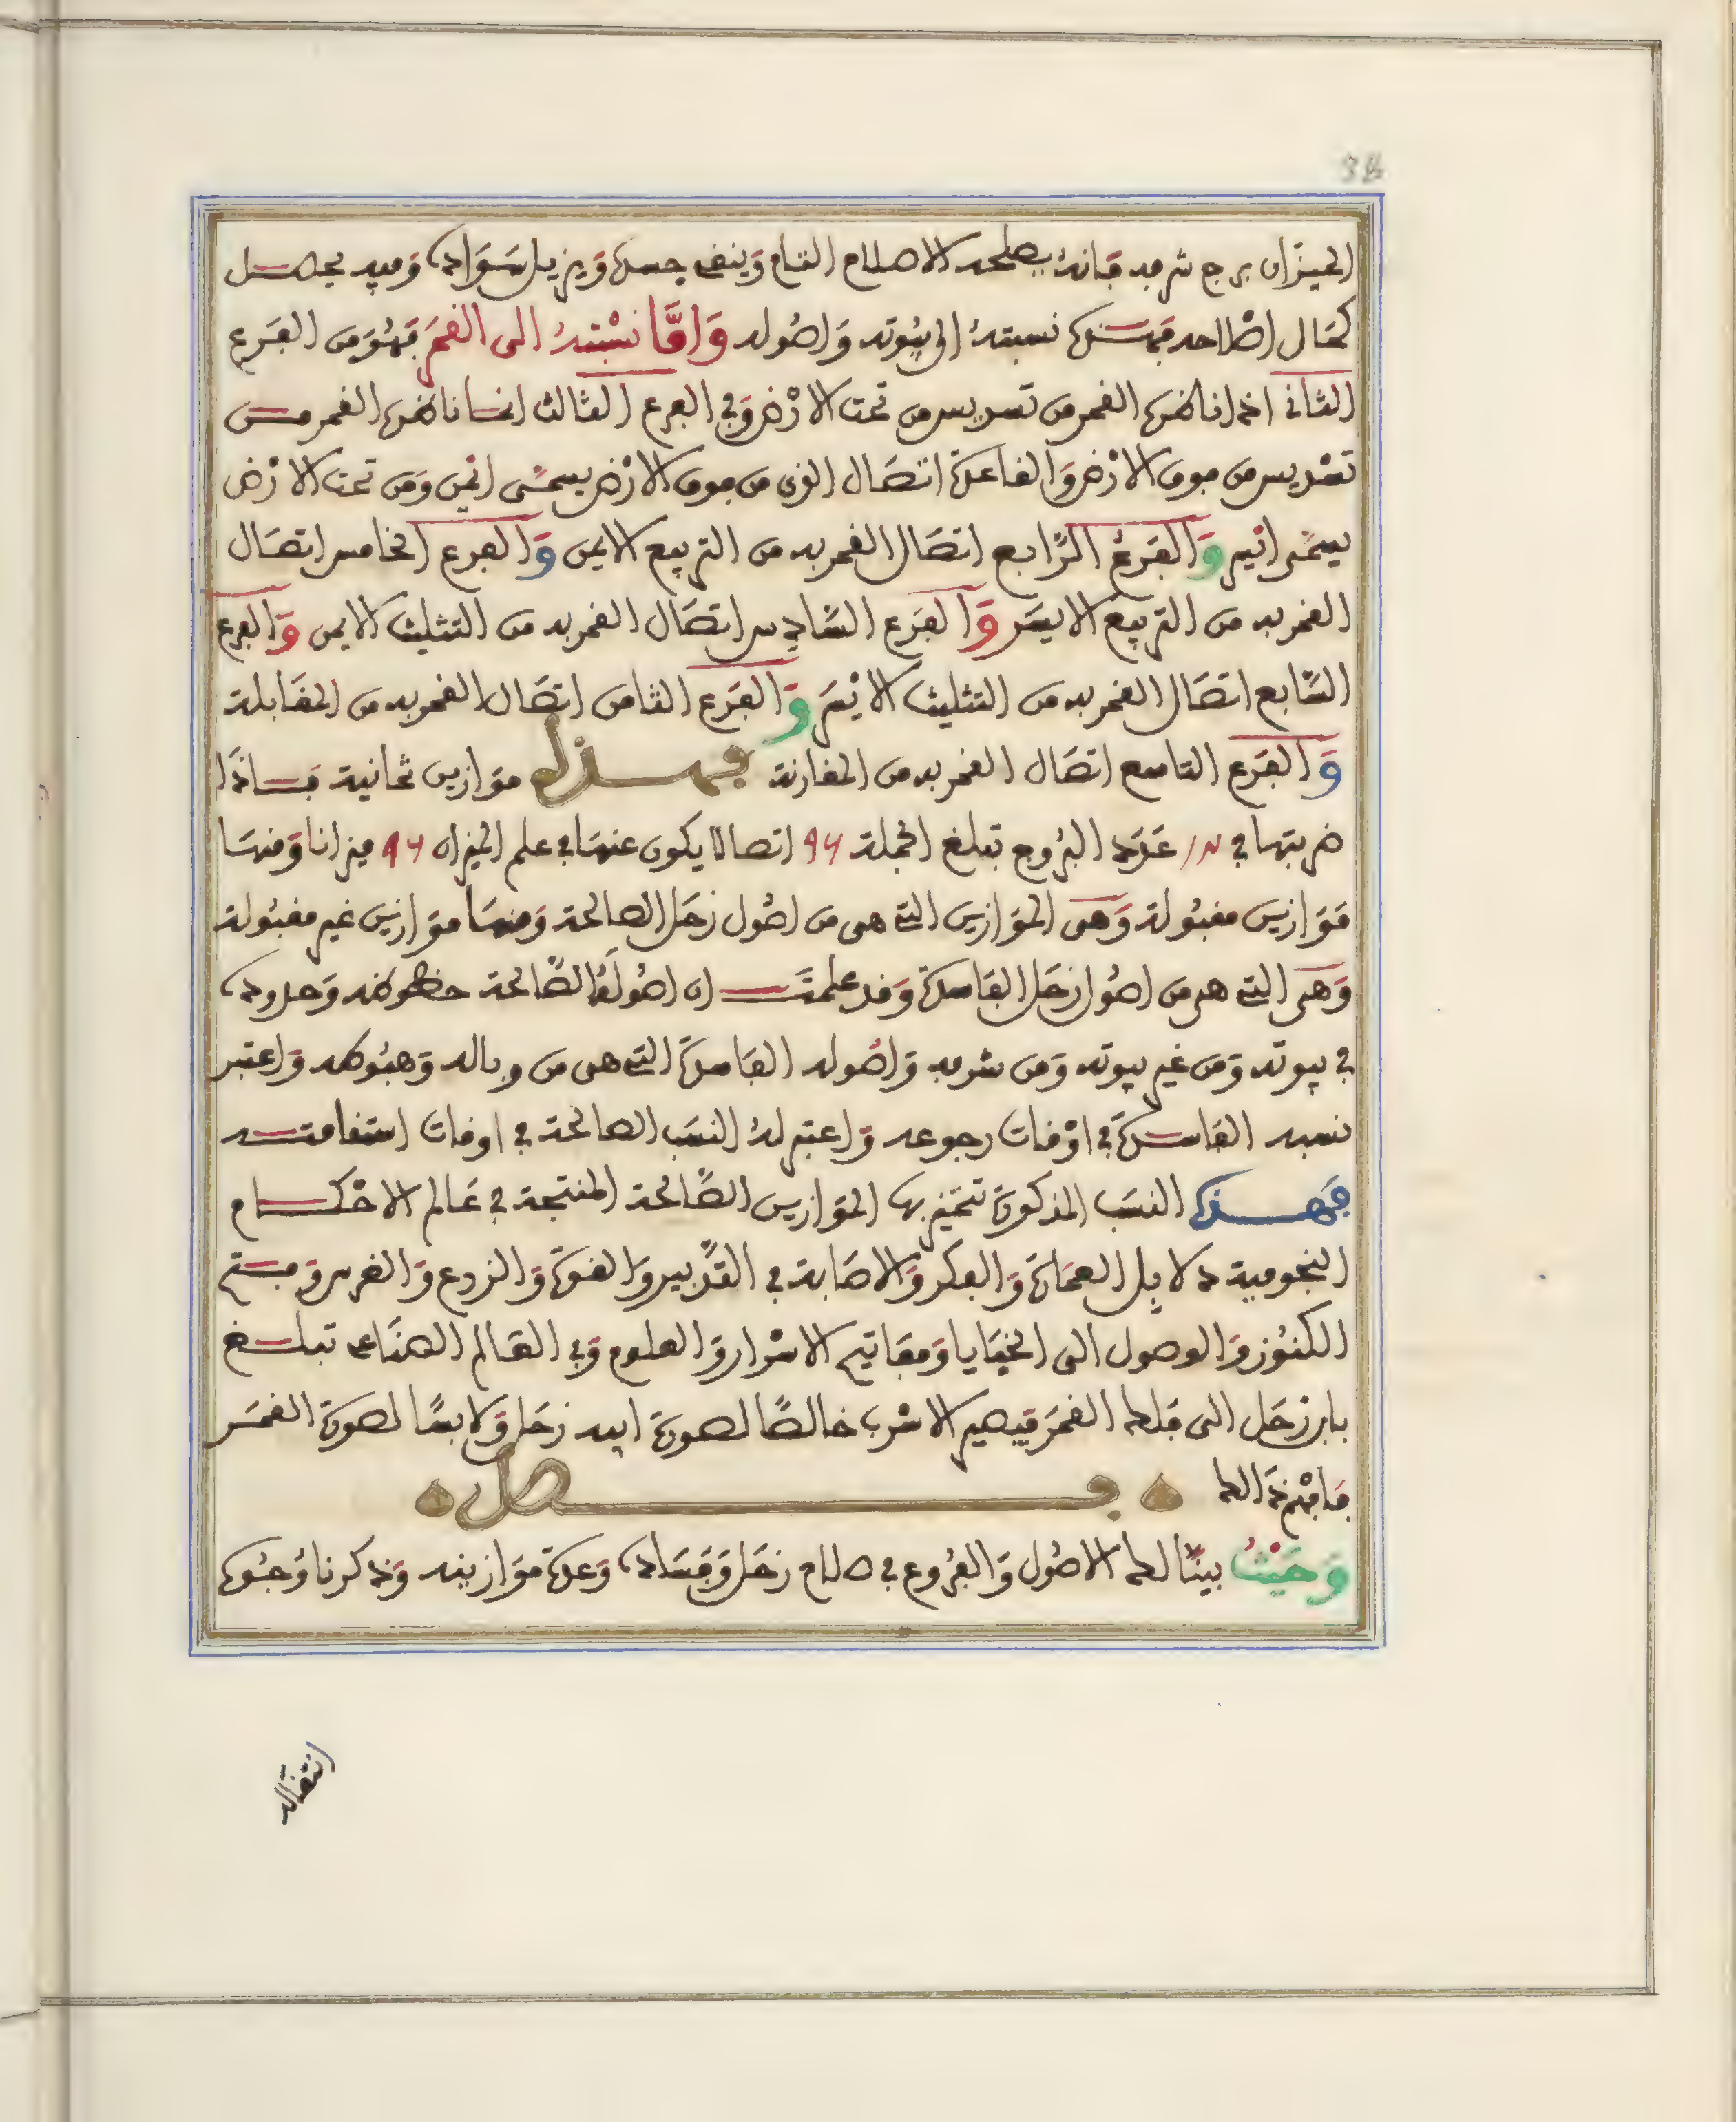 38
الميزان برج شرفه فانه يصلحه الاصلاح التام وينقي جسده ويزيل سواده وفيه يحصل
كمال اصلاحه فهذه نسبته الى بيوته واصوله وَامَّا نسْبتهُ الى القمَر فهُوَ من الفَرع
الثاني اذا ناظره القمر من تسديس من تحت الارْض وفي الفرع الثالث اذا ناظره القمر من
تسْديس من فوق الارْض وَالقاعدة اتصَال الذي من فوق الارْض يسمَّى ايمن ومن تحت الارْض
يسمَّى ايسر وَالفَرعُ الرَّابع اتصَال القمر به من التربيع الايمن وَالفرع الخامس اتصَال
القمر به من التربيع الايسَر وَالفَرع السَّادس اتصَال القمر به من التثليث الايمن وَالفرع
السَّابع اتصَال القمر به من التثليث الايْسَر وَالفَرع الثامن اتصَال القمر به من المقَابلة
وَالفَرع التاسع اتصَال القمر به من المقارنة فهذه موَازين ثمانية فاذَا
ضربتها في ١٢ عَدَد البرُوج تبلغ الجملة 96 اتصالا يكون عنهَا في علم الميزان 96 ميزانا وَمنهَا
موَازين مقبُولة وَهي الموَازين التي هي من اصُول زحَل الصالحة وَمنهَا موَازين غير مقبُولة
وَهي التي هي من اصُول زحَل الفَاسدة وَقد علمتَ ان اصُولَهُ الصَّالحة حظوظه وَحدوده
في بيوته وَمن غير بيوته وَمن شرفه وَاصُوله الفَاسدة التي هي من وباله وَهبُوطه وَاعتبر
نسبه الفَاسدة في اوْقات رجوعه وَاعتبر لهُ النسَب الصالحة في اوقات استقامته
فهذه النسَب المذكورَة تتميز بها الموَازين الصَّالحة المنتجة في عَالم الاحْكام
النجومية دلايل العمَارة وَالفكر وَالاصَابة في التدْبير وَالقوة وَالزرع وَالغرس وَفتح
الكنُوز وَالوصول الى الخبَايا وَمفَاتيح الاسْرار وَالعلوم وَفي العَالم الصنَاعي تبلغ
بابن زحَل الى فلك القمَر فيصير الاسْرب خالصًا لصورة ابيه زحَل وَلابسًا لصورة القمَر
فافهَم ذَالك فصل
وَحَيْثُ بينَّا لك الاصُول وَالفرُوع في صلاح زحَل وَفسَاده وَعدة موَازينه وَذكرنا وُجُوه
انتقاله